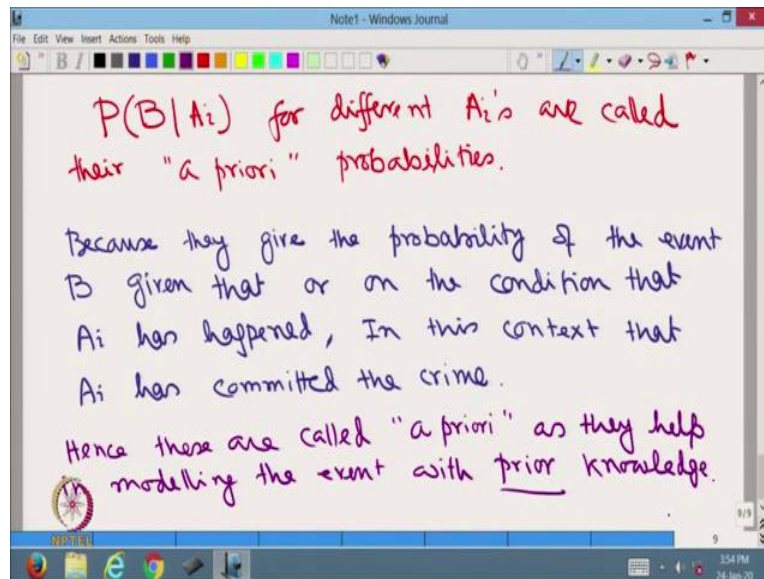 Note1 - Windows Journal
File Edit View Insert Actions Tools Help
B I
P(B|Ai) for different Ai's are called
their "a priori" probabilities.
Because they give the probability of the event
B given that or on the condition that
Ai has happened, In this context that
Ai has committed the crime.
Hence these are called "a priori" as they help
modelling the event with prior knowledge.
NPTEL
9/9
9
3:54 PM
24-Jan-20